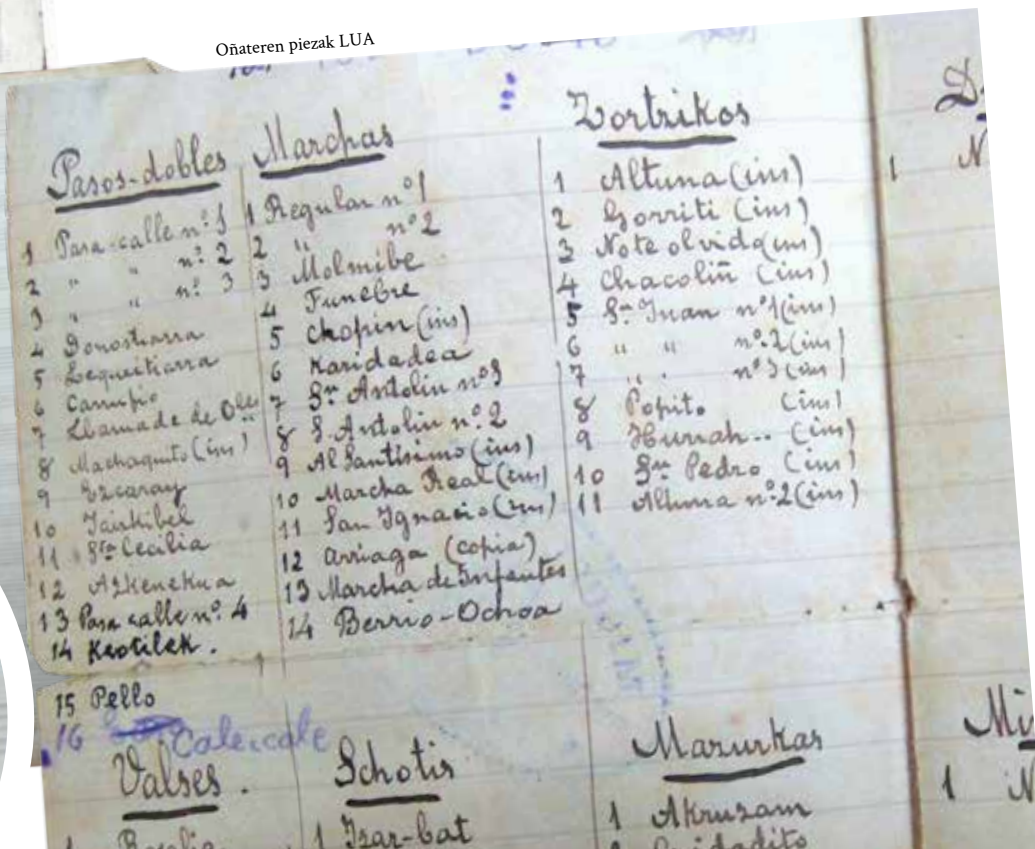 Oñateren piezak LUA
Pasos-dobles
1 Pasa-calle nº 1
2 " " nº 2
3 " " nº 3
4 Donostiarra
5 Lequeitiarra
6
7 Llamada de
8 Machaquito (ins)
9 Ezcaray
10 Jaizkibel
11 Sta Cecilia
12 Azkenekua
13 Pasa calle nº 4
14
15 Pello
16 Calecale
Marchas
1 Regular nº 1
2 " nº 2
3 Molmibe
4 Funebre
5 Chopin (ins)
6 Karidadea
7 Sn Antolin nº 1
8 S. Antolin nº 2
9 Al Santisimo (ins)
10 Marcha Real (ins)
11 San Ignacio (ins)
12 Arriaga (copia)
13 Marcha de Infantes
14 Berrio-Ochoa
Zortzikos
1 Altuna (ins)
2 Gorriti (ins)
3 No te olvido (ins)
4 Chacolin (ins)
5 Sn Juan nº 1 (ins)
6 " " nº 2 (ins)
7 " " nº 3 (ins)
8 Popito (ins)
9 Hurrah.. (ins)
10 Sn Pedro (ins)
11 Altuna nº 2 (ins)
1 N
Valses.
1
Schotis
1 Izar-bat
Mazurkas
1 Akruzam
2
Mi
1 N